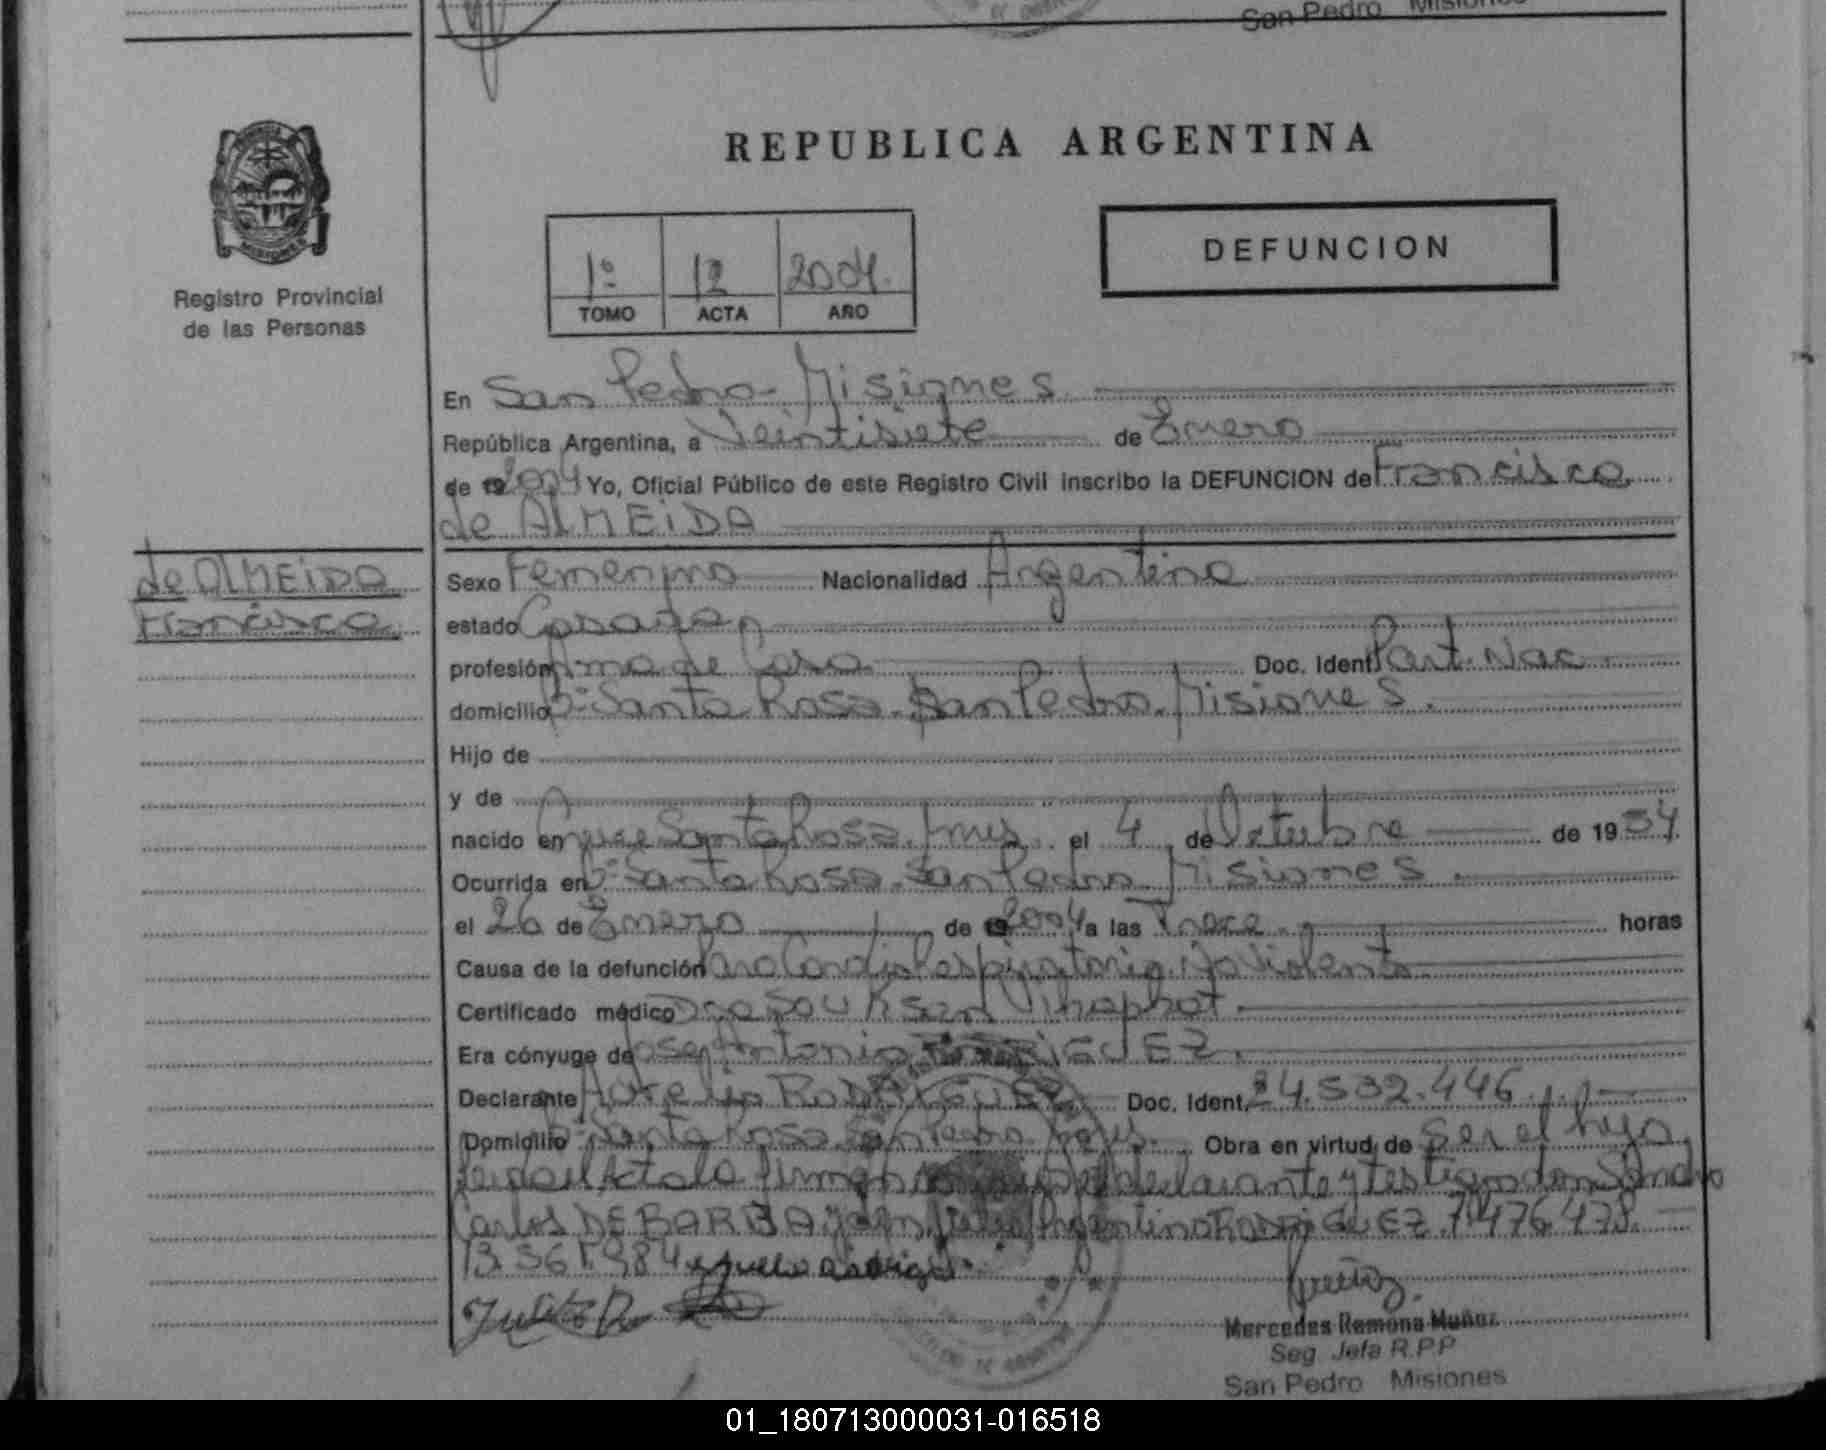 San Pedro Misiones
REPUBLICA ARGENTINA
MISIONES
Registro Provincial
de las Personas
1º 12 2004.
TOMO ACTA AÑO
DEFUNCION
En San Pedro - Misiones
República Argentina, a Veintisiete de Enero
de 2004 Yo, Oficial Público de este Registro Civil inscribo la DEFUNCION de Francisca
de ALMEIDA
de ALMEIDA
Francisca
Sexo Femenino Nacionalidad Argentina
estado Casada
profesión Ama de Casa Doc. Ident Part. Nac
domicilio Bº Santa Rosa - San Pedro. Misiones.
Hijo de
y de
nacido en Cruce Santa Rosa, Mnes. el 4 de Octubre de 19 54
Ocurrida en Bº Santa Rosa - San Pedro. Misiones.
el 26 de Enero de 2004 a las Trece horas
Causa de la defunción Paro Cardio Respiratorio. No Violento
Certificado médico
Era cónyuge de José Antonio RODRIGUEZ.
Declarante Aurelio RODRIGUEZ Doc. Ident. 24.532.446
Domicilio Bº Santa Rosa San Pedro. Obra en virtud de ser el hijo
Leida el Acta la firman declarante y testigos don Sandro
Carlos DE BARBA y don Julio Argentino RODRIGUEZ. 7.476.478.
13.561.984
Mercedes Ramona Muñoz
Seg. Jefa R.P.P
San Pedro Misiones
01_180713000031-016518